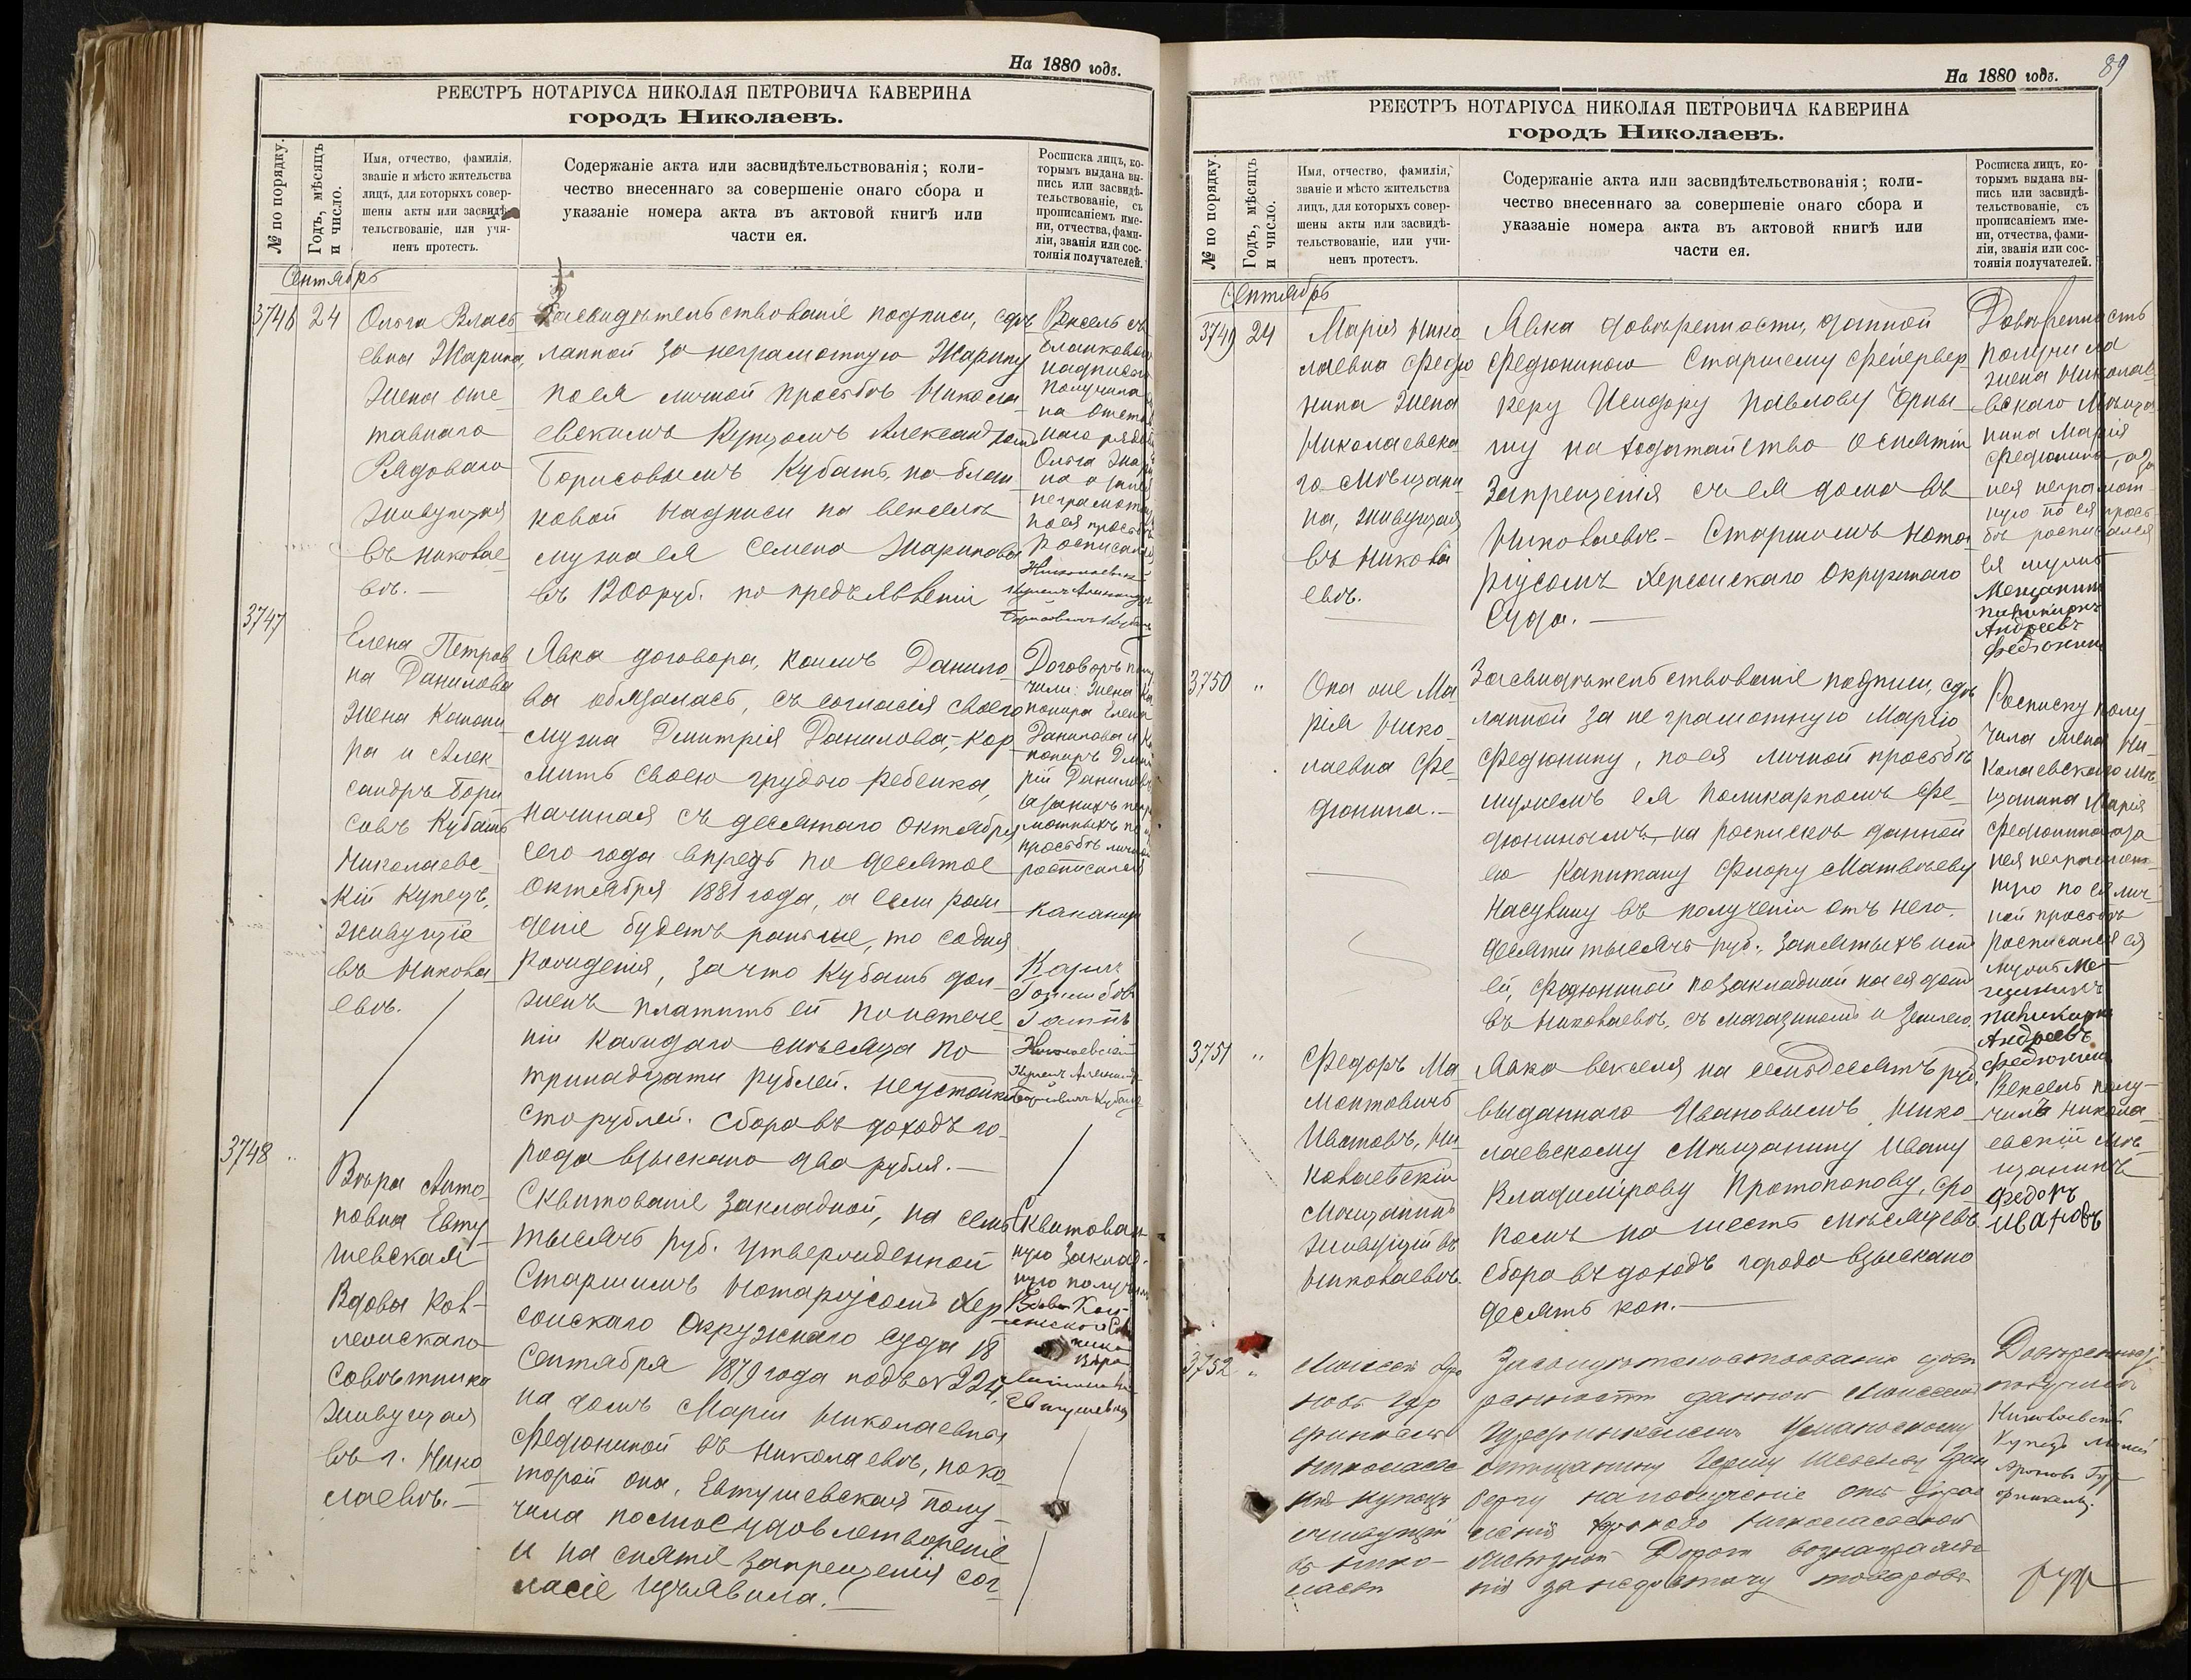 На 1880 годъ.
РЕЕСТРЪ НОТАРІУСА НИКОЛАЯ ПЕТРОВИЧА КАВЕРИНА
городъ Николаевъ.
№ по порядку.
Годъ, мѣсяцъ
и число.
Имя, отчество, фамилія,
званіе и мѣсто жительства
лицъ, для которыхъ совер-
шены акты или засвидѣ-
тельствованіе, или учи-
ненъ протестъ.
Содержаніе акта или засвидѣтельствованія; коли-
чество внесеннаго за совершеніе онаго сбора и
указаніе номера акта въ актовой книгѣ или
части ея.
Росписка лицъ, ко-
торымъ выдана вы-
пись или засвидѣ-
тельствованіе, съ
прописаніемъ име-
ни, отчества, фами-
ліи, званія или сос-
тоянія получателей.
Сентябрь
3746
24
Ольга Влась
евна Жарина,
жена отс-
тавнаго
Рядоваго
живущая
въ Николае
вѣ. —
Засвидѣтельствованіе подписи, сдѣ
ланной за неграмотную Жарину
по ея личной просьбѣ Никола-
евскимъ Купцомъ Александромъ
Борисовымъ Кубашъ, на блан
ковой надписи на векселѣ
мужа ея Семена Жарикова
въ 1200 руб. по предъявленіи
Вексель съ
бланковой
надписью
получила
Ольга
неграмот
по ея просьбѣ
3747
Елена Петров
на Данилова
жена Канони
ра и Алек-
сандръ Бори
совъ Кубашъ
Николаевс-
кій Купецъ,
живущіе
въ Никола
евѣ.
Явка договора, коимъ Данило-
ва обязалась, съ согласія своего
мужа Дмитрія Данилова, кор
мить своею грудью ребенка,
начиная съ десятаго Октября
сего года впредь по десятое
Октября 1881 года, а если рож-
деніе будетъ раньше, то со дня
рожденія, за что Кубашъ дол-
женъ платить ей по истече-
ніи каждаго мѣсяца по
тринадцати рублей. Неустойки
сто рублей. Сбора въ доходъ го-
рода взыскано два рубля. —
Договоръ полу
чили: жена Ка
нонира Елена
Данилова и Ка
нониръ Дмит
рій Даниловъ
а за нихъ негра
мотныхъ по
просьбѣ личной
росписался
Николаевскій
Купецъ Александръ
Борисовичъ Кубашъ
3748
"
Вѣра Анто-
новна Евту-
шевская
Вдова Кол-
лежскаго
Совѣтника
живущая
въ г. Нико
лаевѣ. —
Сквитованіе закладной, на семь
тысячъ руб. утвержденной
Старшимъ Нотаріусомъ Хер
сонскаго Окружнаго Суда 18
Сентября 1879 года подъ №224,
на домъ Маріи Николаевны
Федюниной въ Николаевѣ, по ко
торой она, Евтушевская полу-
чила полное удовлетвореніе
и на снятіе запрещенія сог-
ласіе изъявила. —
Сквитован-
ную заклад-
ную получила
Вдова Кол-
Вѣра
Евтушевская
На 1880 годъ.
89
РЕЕСТРЪ НОТАРІУСА НИКОЛАЯ ПЕТРОВИЧА КАВЕРИНА
городъ Николаевъ.
№ по порядку.
Годъ, мѣсяцъ
и число.
Имя, отчество, фамилія,
званіе и мѣсто жительства
лицъ, для которыхъ совер-
шены акты или засвидѣ-
тельствованіе, или учи-
ненъ протестъ.
Содержаніе акта или засвидѣтельствованія; коли-
чество внесеннаго за совершеніе онаго сбора и
указаніе номера акта въ актовой книгѣ или
части ея.
Росписка лицъ, ко-
торымъ выдана вы-
пись или засвидѣ-
тельствованіе, съ
прописаніемъ име-
ни, отчества, фами-
ліи, званія или сос-
тоянія получателей.
Сентябрь
3749
24
Марія Нико
лаевна Федю
нина жена
Николаевска
го мѣщани
на, живущая
въ Никола
евѣ.
Явка довѣренности, данной
Федюниною Старшему Фейервер-
керу Исидору Павлову Чрны-
шу на ходатайство о снятіи
запрещенія съ ея дома въ
Николаевѣ - Старшимъ Нота-
ріусомъ Херсонскаго Окружнаго
Суда. —
Довѣренность
получила
жена Николае-
вскаго Мѣща-
нина Марія
Федюнина, а за
нея неграмот-
ную по ея прось-
бѣ росписался
ея мужъ
Мещанинъ
Андреевъ
Федюнинъ
3750
"
Она же Ма
рія Нико-
лаевна Фе-
дюнина. —
Засвидѣтельствованіе подписи, сдѣ
ланной за неграмотную Марію
Федюнину, по ея личной просьбѣ
мужемъ ея Поликарпомъ Фе-
дюнинымъ, на роспискѣ данной
ею Капитану Флору Матвѣеву
въ полученіи отъ него
десяти тысячъ руб., занятыхъ имъ
ей, Федюниной по закладной на ея домъ
въ Николаевѣ, съ магазиномъ и землею.
Росписку полу
чила жена Ни-
колаевскаго мѣ-
щанина Марія
Федюнина а за
нея неграмот-
ную по ея лич-
ной просьбѣ
росписался ея
мужъ Ме-
щанинъ
Андреевъ
Федюнинъ
3751
"
Федоръ Ма
монтовичъ
Ивановъ, Ни
колаевскій
Мѣщанинъ
живущій въ
Николаевѣ.
Явка векселя на семьдесятъ руб.
выданнаго Ивановымъ Нико-
лаевскому Мѣщанину Ивану
Владимірову Протопопову, сро-
комъ на шесть мѣсяцевъ
Сбора въ доходъ города взыскано
десять коп. —
Вексель полу-
чилъ Никола-
евскій мѣ-
щанинъ
Федоръ
Ивановъ
3752
"
Моисей Аро
новъ Гур
финкель
Николаевс
кій купецъ
живущій
въ Нико-
лаевѣ
Засвидѣтельствованіе довѣ
ренности данной Моисеемъ
Гурфинкелемъ Уманскому
мѣщанину
на полученіе отъ Управ
ленія Харьково Николаевской
Желѣзной Дороги вознагражде
нія за недостачу товаровъ
Довѣренность
получилъ
Николаевскій
Купецъ Мойсей
Ароновъ Гур-
финкель.